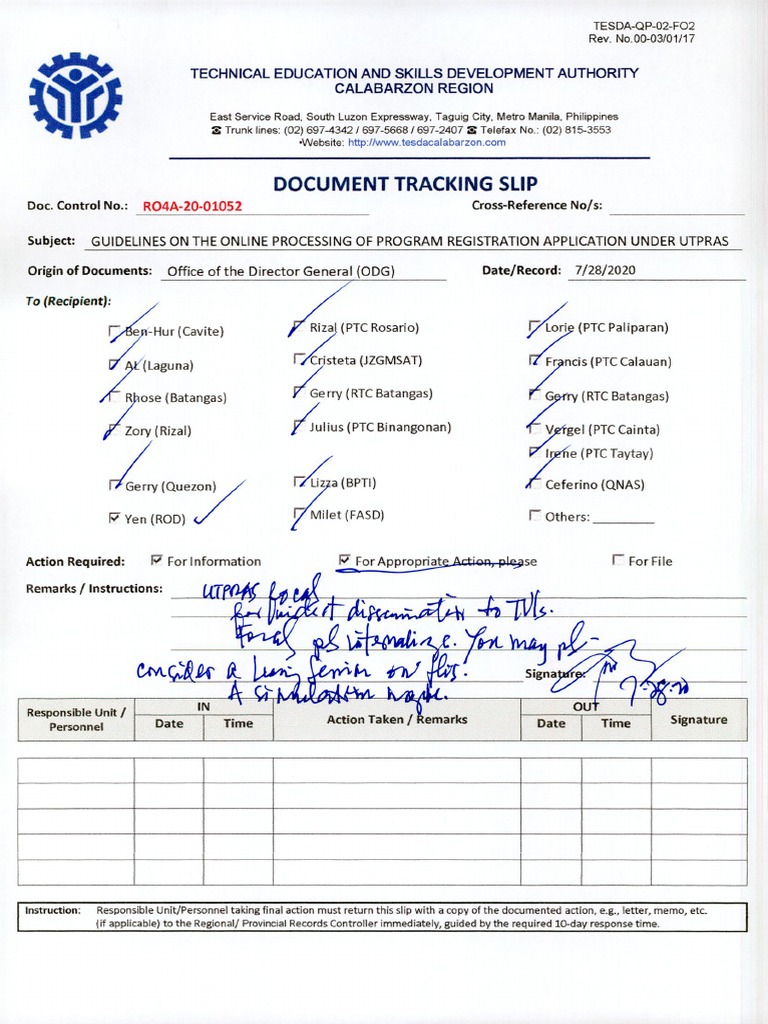 TESDA-QP-02-FO2
Rev. No.00-03/01/17
TECHNICAL EDUCATION AND SKILLS DEVELOPMENT AUTHORITY
CALABARZON REGION
East Service Road, South Luzon Expressway, Taguig City, Metro Manila, Philippines
☎ Trunk lines: (02) 697-4342 / 697-5668 / 697-2407 ☎ Telefax No.: (02) 815-3553
•Website: http://www.tesdacalabarzon.com
DOCUMENT TRACKING SLIP
Doc. Control No.: RO4A-20-01052 Cross-Reference No/s:
Subject: GUIDELINES ON THE ONLINE PROCESSING OF PROGRAM REGISTRATION APPLICATION UNDER UTPRAS
Origin of Documents: Office of the Director General (ODG) Date/Record: 7/28/2020
To (Recipient):
Ben-Hur (Cavite) Rizal (PTC Rosario) Lorie (PTC Paliparan)
AL (Laguna) Cristeta (JZGMSAT) Francis (PTC Calauan)
Rhose (Batangas) Gerry (RTC Batangas) Gerry (RTC Batangas)
Zory (Rizal) Julius (PTC Binangonan) Vergel (PTC Cainta)
Irene (PTC Taytay)
Gerry (Quezon) Lizza (BPTI) Ceferino (QNAS)
Yen (ROD) Milet (FASD) Others:
Action Required: For Information For Appropriate Action, please For File
Remarks / Instructions: UTPRAS focal
for widest dissemination to TVIs.
Focal pls internalize. You may pl-
consider a
Signature: 7-28-20
A simulation
Responsible Unit / Personnel IN Date Time Action Taken / Remarks OUT Date Time Signature
Instruction: Responsible Unit/Personnel taking final action must return this slip with a copy of the documented action, e.g., letter, memo, etc.
(if applicable) to the Regional/ Provincial Records Controller immediately, guided by the required 10-day response time.